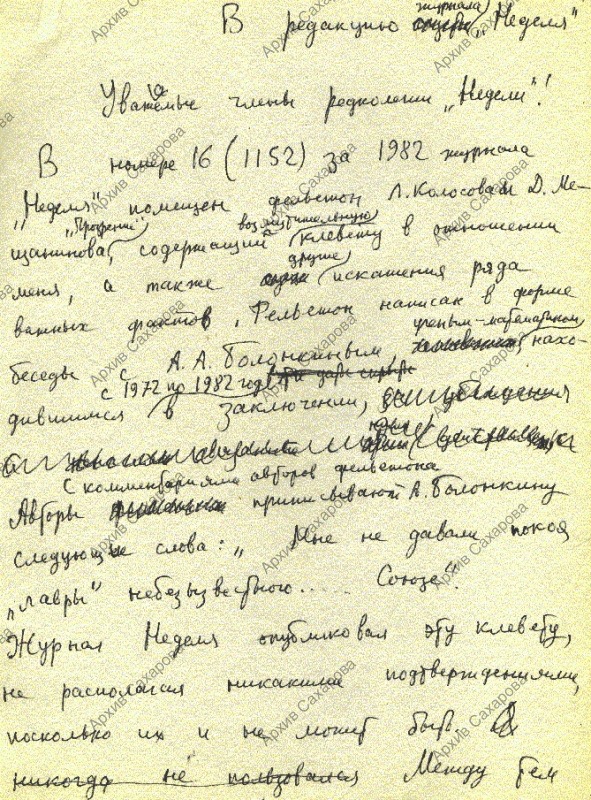 В редакцию журнала „Неделя"
Уважаемые члены редколегии „Недели"!
В номере 16 (1152) за 1982 журнала
„Неделя" помещен фельетон Л. Колосова и Д. Ме-
щанинова, „Прозрение" содержащий возмутительную клевету в отношении
меня, а также другие искажения ряда
важных фактов. Фельетон написан в форме
беседы с А. А. Болонкиным, ученым-математиком, нахо-
дившимся с 1972 по 1982 годы в заключении,
с комментариями авторов фельетона
Авторы приписывают А. Болонкину
следующие слова: „Мне не давали покоя
„лавры" небезызвестного..... Союзе".
Журнал Неделя опубликовал эту клевету,
не располагая никакими подтверждениями,
поскольку их и не может быть.
никогда не пользовался Между тем
Архив Сахарова